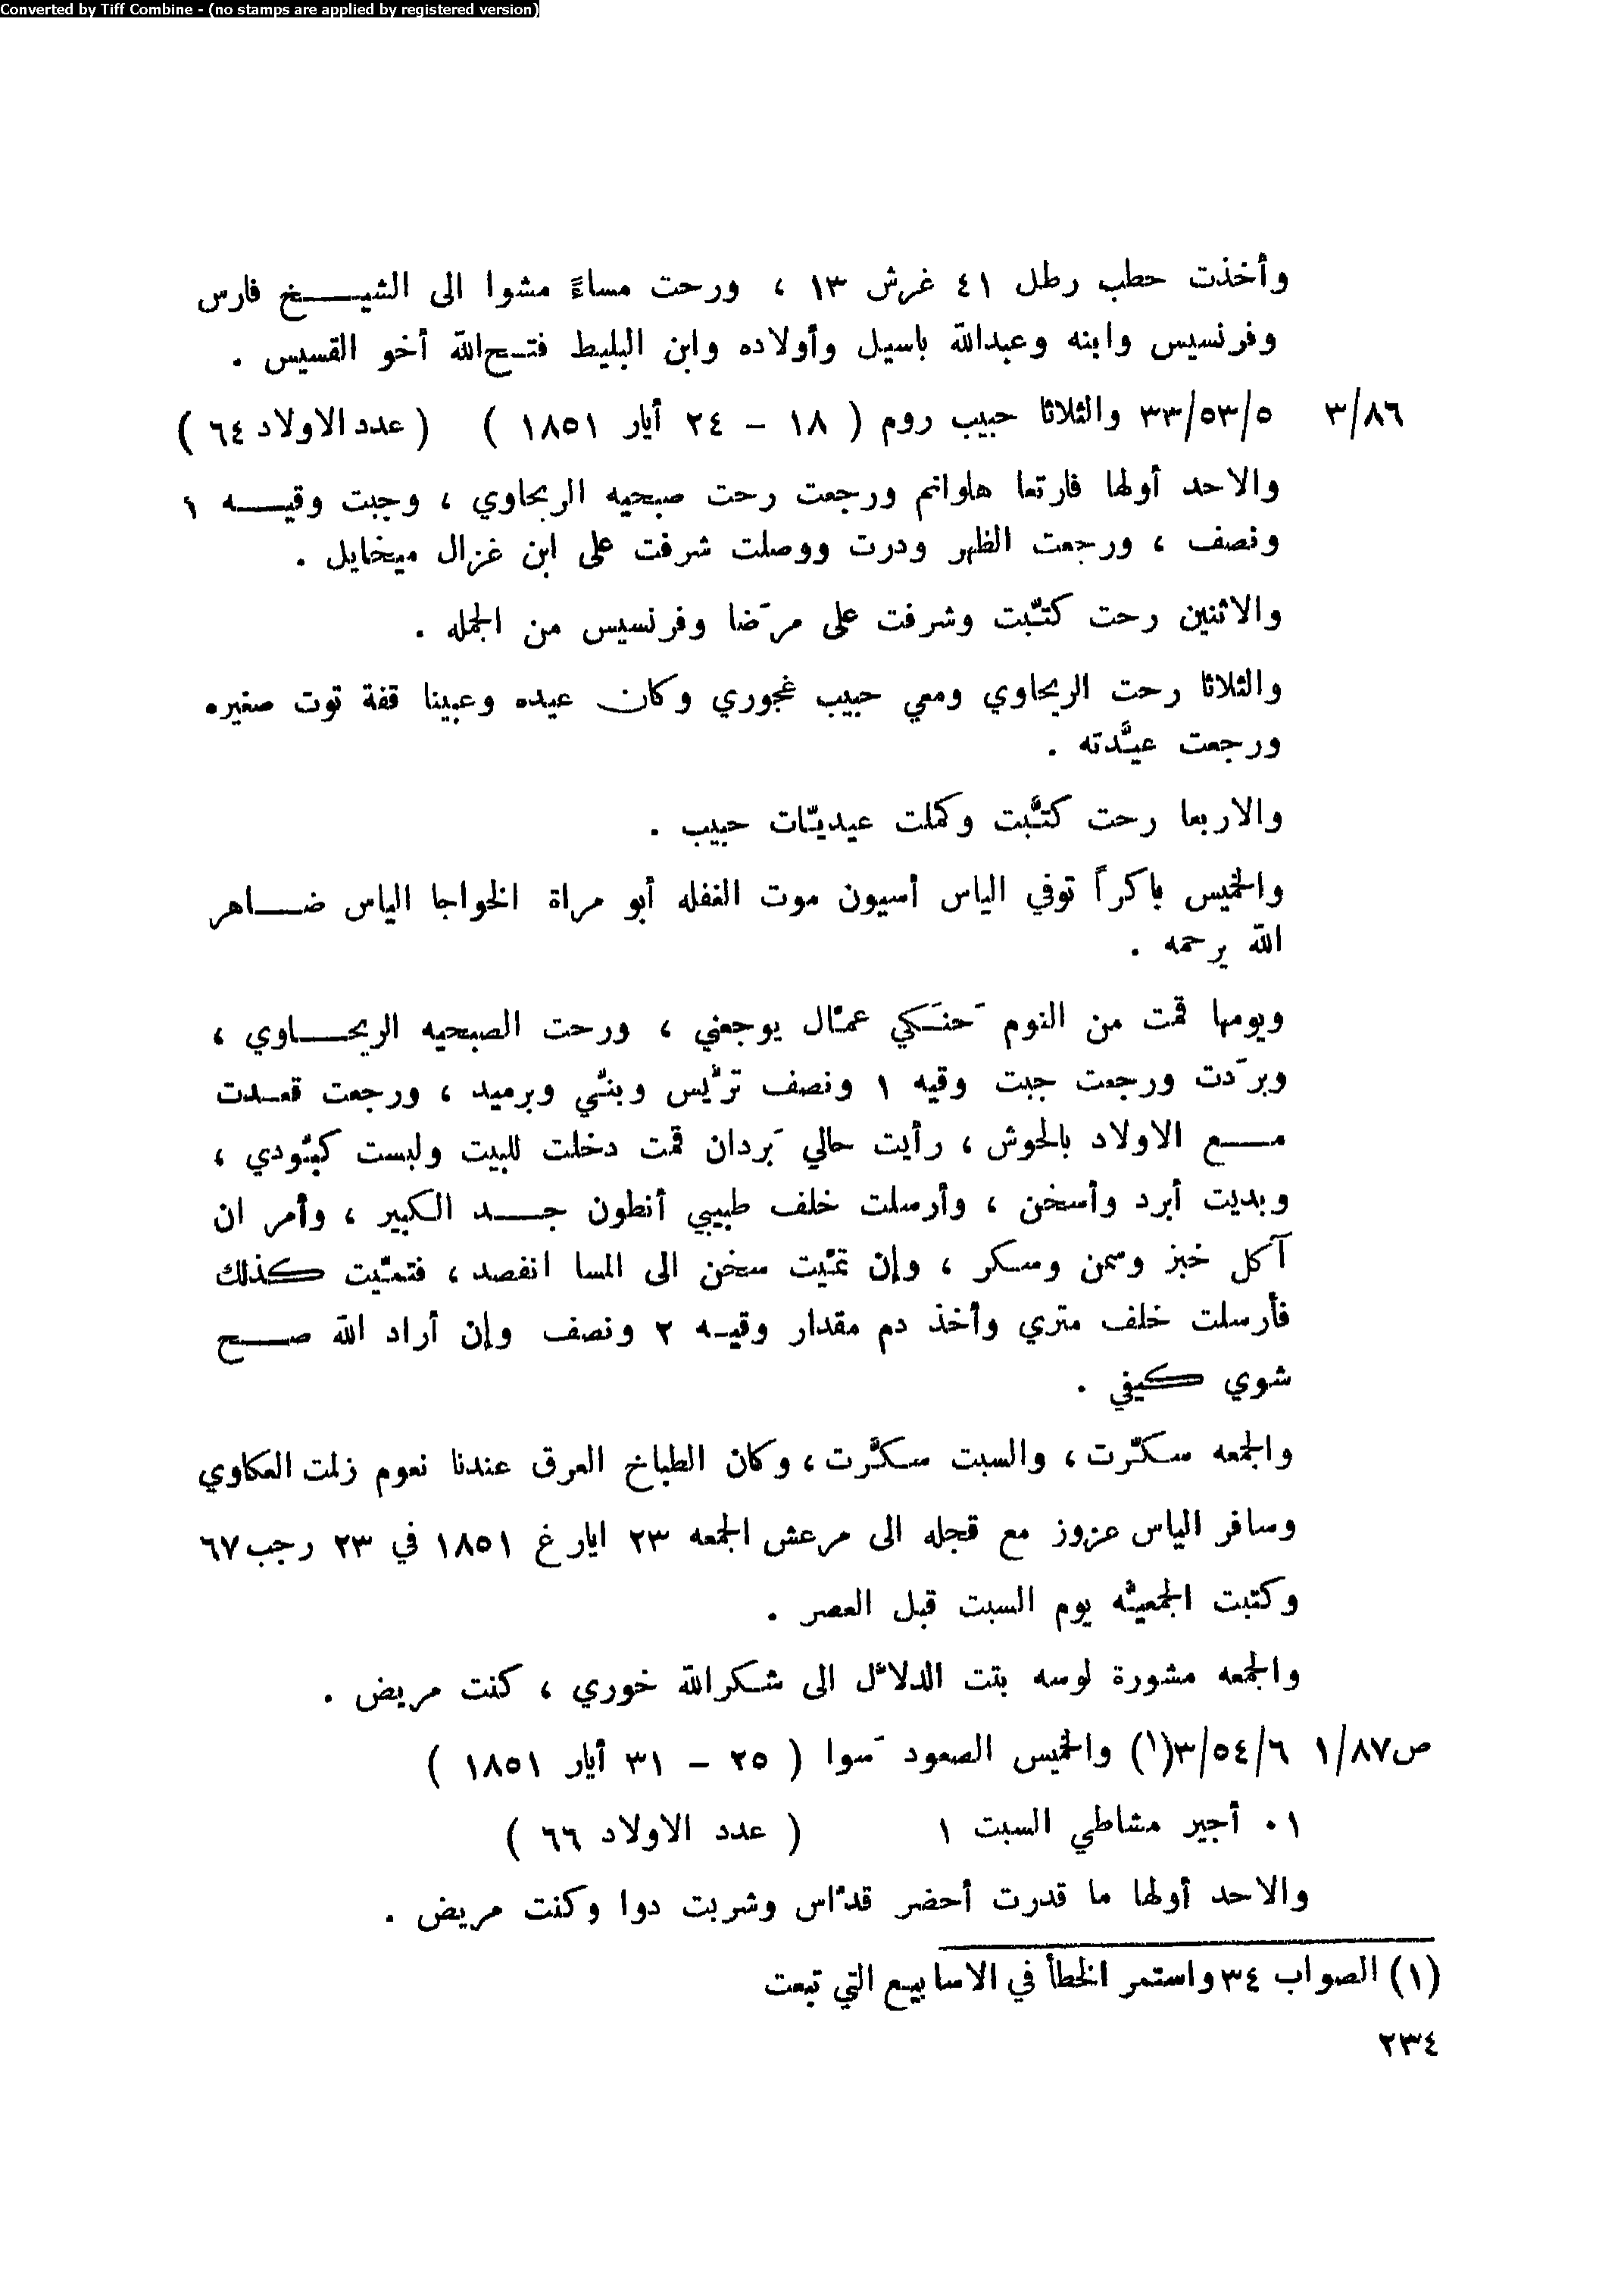 Converted by Tiff Combine - (no stamps are applied by registered version)
وأخذت حطب رطل ٤١ غرش ١٣ ، ورحت مساءً مشوا الى الشيخ فارس
وفرنسيس وابنه وعبدالله باسيل وأولاده وابن البليط فتح‌الله أخو القسيس .
٣/٨٦ ٣٣/٥٣/٥ والثلاثا حبيب روم ( ١٨ – ٢٤ أيار ١٨٥١ ) ( عدد الاولاد ٦٤ )
والاحد أولها فارتعا هلوانم ورجعت رحت صبحيه الريحاوي ، وجبت وقيه ١
ونصف ، ورجعت الظهر ودرت ووصلت شرفت على ابن غزال ميخايل .
والاثنين رحت كتّبت وشرفت على مرَضا وفرنسيس من الجمله .
والثلاثا رحت الريحاوي ومعي حبيب غجوري وكان عيده وعبينا قفة توت صغيره
ورجعت عيَّدته .
والاربعا رحت كتَّبت وكملت عيديّات حبيب .
والخميس باكراً توفي الياس أسيون موت الغفله أبو مراة الخواجا الياس ضاهر
الله يرحمه .
ويومها قمت من النوم حَنَكي عمّال يوجعني ، ورحت الصبحيه الريحاوي ،
وبرَدت ورجعت جبت وقيه ١ ونصف تريّس وبنّي وبرميد ، ورجعت قعدت
مع الاولاد بالحوش ، رأيت حالي بَردان قمت دخلت للبيت ولبست كبّودي ،
وبديت أبرد وأسخن ، وأرسلت خلف طبيبي أنطون جد الكبير ، وأمر ان
آكل خبز وسمن وسكر ، وإن تمّيت سخن الى المسا انفصد ، فتمّيت كذلك
فأرسلت خلف متري وأخذ دم مقدار وقيه ٢ ونصف وإن أراد الله صح
شوي كيفي .
والجمعه سكّرت ، والسبت سكَّرت ، وكان الطباخ العرق عندنا نعوم زلمت العكاوي
وسافر الياس عزوز مع قجله الى مرعش الجمعه ٢٣ ايار غ ١٨٥١ في ٢٣ رجب ٦٧
وكتبت الجمعيّه يوم السبت قبل العصر .
والجمعه مشورة لوسه بنت الدلاّل الى شكرالله خوري ، كنت مريض .
ص٨٧/١ ٣/٥٤/٦(١) والخميس الصعود سَوا ( ٢٥ – ٣١ أيار ١٨٥١ )
٠١ أجير مشاطي السبت ١ ( عدد الاولاد ٦٦ )
والاحد أولها ما قدرت أحضر قدّاس وشربت دوا وكنت مريض .
(١) الصواب ٣٤ واستمر الخطأ في الاسابيع التي تبعت
٢٣٤